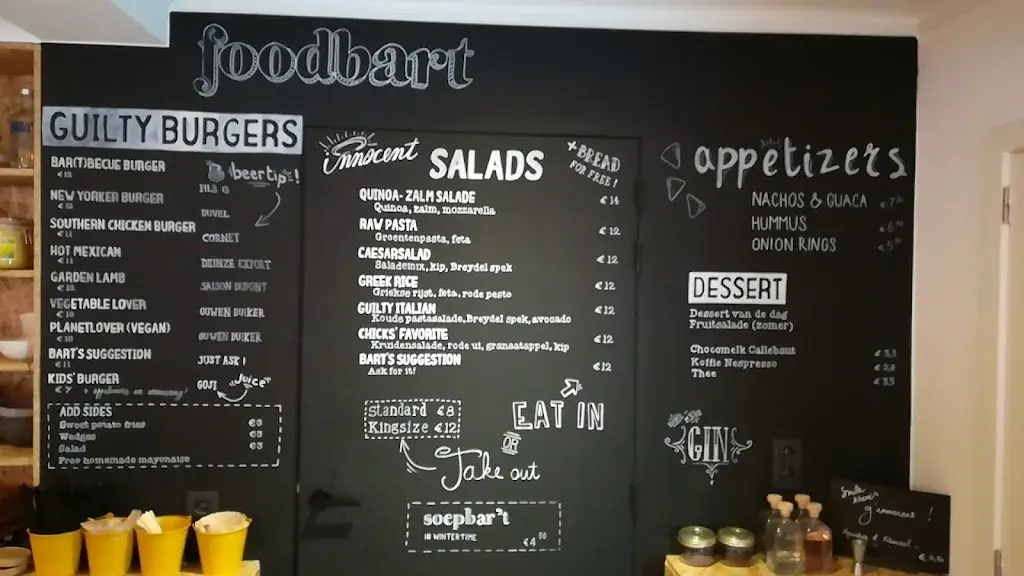 foodbart
GUILTY BURGERS
beertip!
BAR(T)BECUE BURGER
NEW YORKER BURGER
DUVEL
SOUTHERN CHICKEN BURGER
€11
CORNET
HOT MEXICAN
€11
DEINZE EXPORT
GARDEN LAMB
SAISON DUPONT
VEGETABLE LOVER
€10
OUWEN DUIKER
PLANETLOVER (VEGAN)
€10
OUWEN DUIKER
BART'S SUGGESTION
€11
JUST ASK!
KIDS' BURGER
€7
GOJI juice
ADD SIDES
Sweet potato fries €3
Wedges €3
Salad €3
Free homemade mayonaise
Innocent SALADS
+ BREAD
FOR FREE!
QUINOA- ZALM SALADE €14
Quinoa, zalm, mozzarella
RAW PASTA €12
Groentenpasta, feta
CAESARSALAD €12
Salademix, kip, Breydel spek
GREEK RICE €12
Griekse rijst, feta, rode pesto
GUILTY ITALIAN €12
Koude pastasalade, Breydel spek, avocado
CHICKS' FAVORITE €12
Kruidensalade, rode ui, granaatappel, kip
BART'S SUGGESTION €12
Ask for it!
EAT IN
standard €8
Kingsize €12
Take out
soepbar't
IN WINTERTIME €4⁵⁰
appetizers
NACHOS & GUACA
HUMMUS
ONION RINGS
DESSERT
Dessert van de dag
Fruitsalade (zomer)
Chocomelk Callebaut
Koffie Nespresso
Thee
GIN